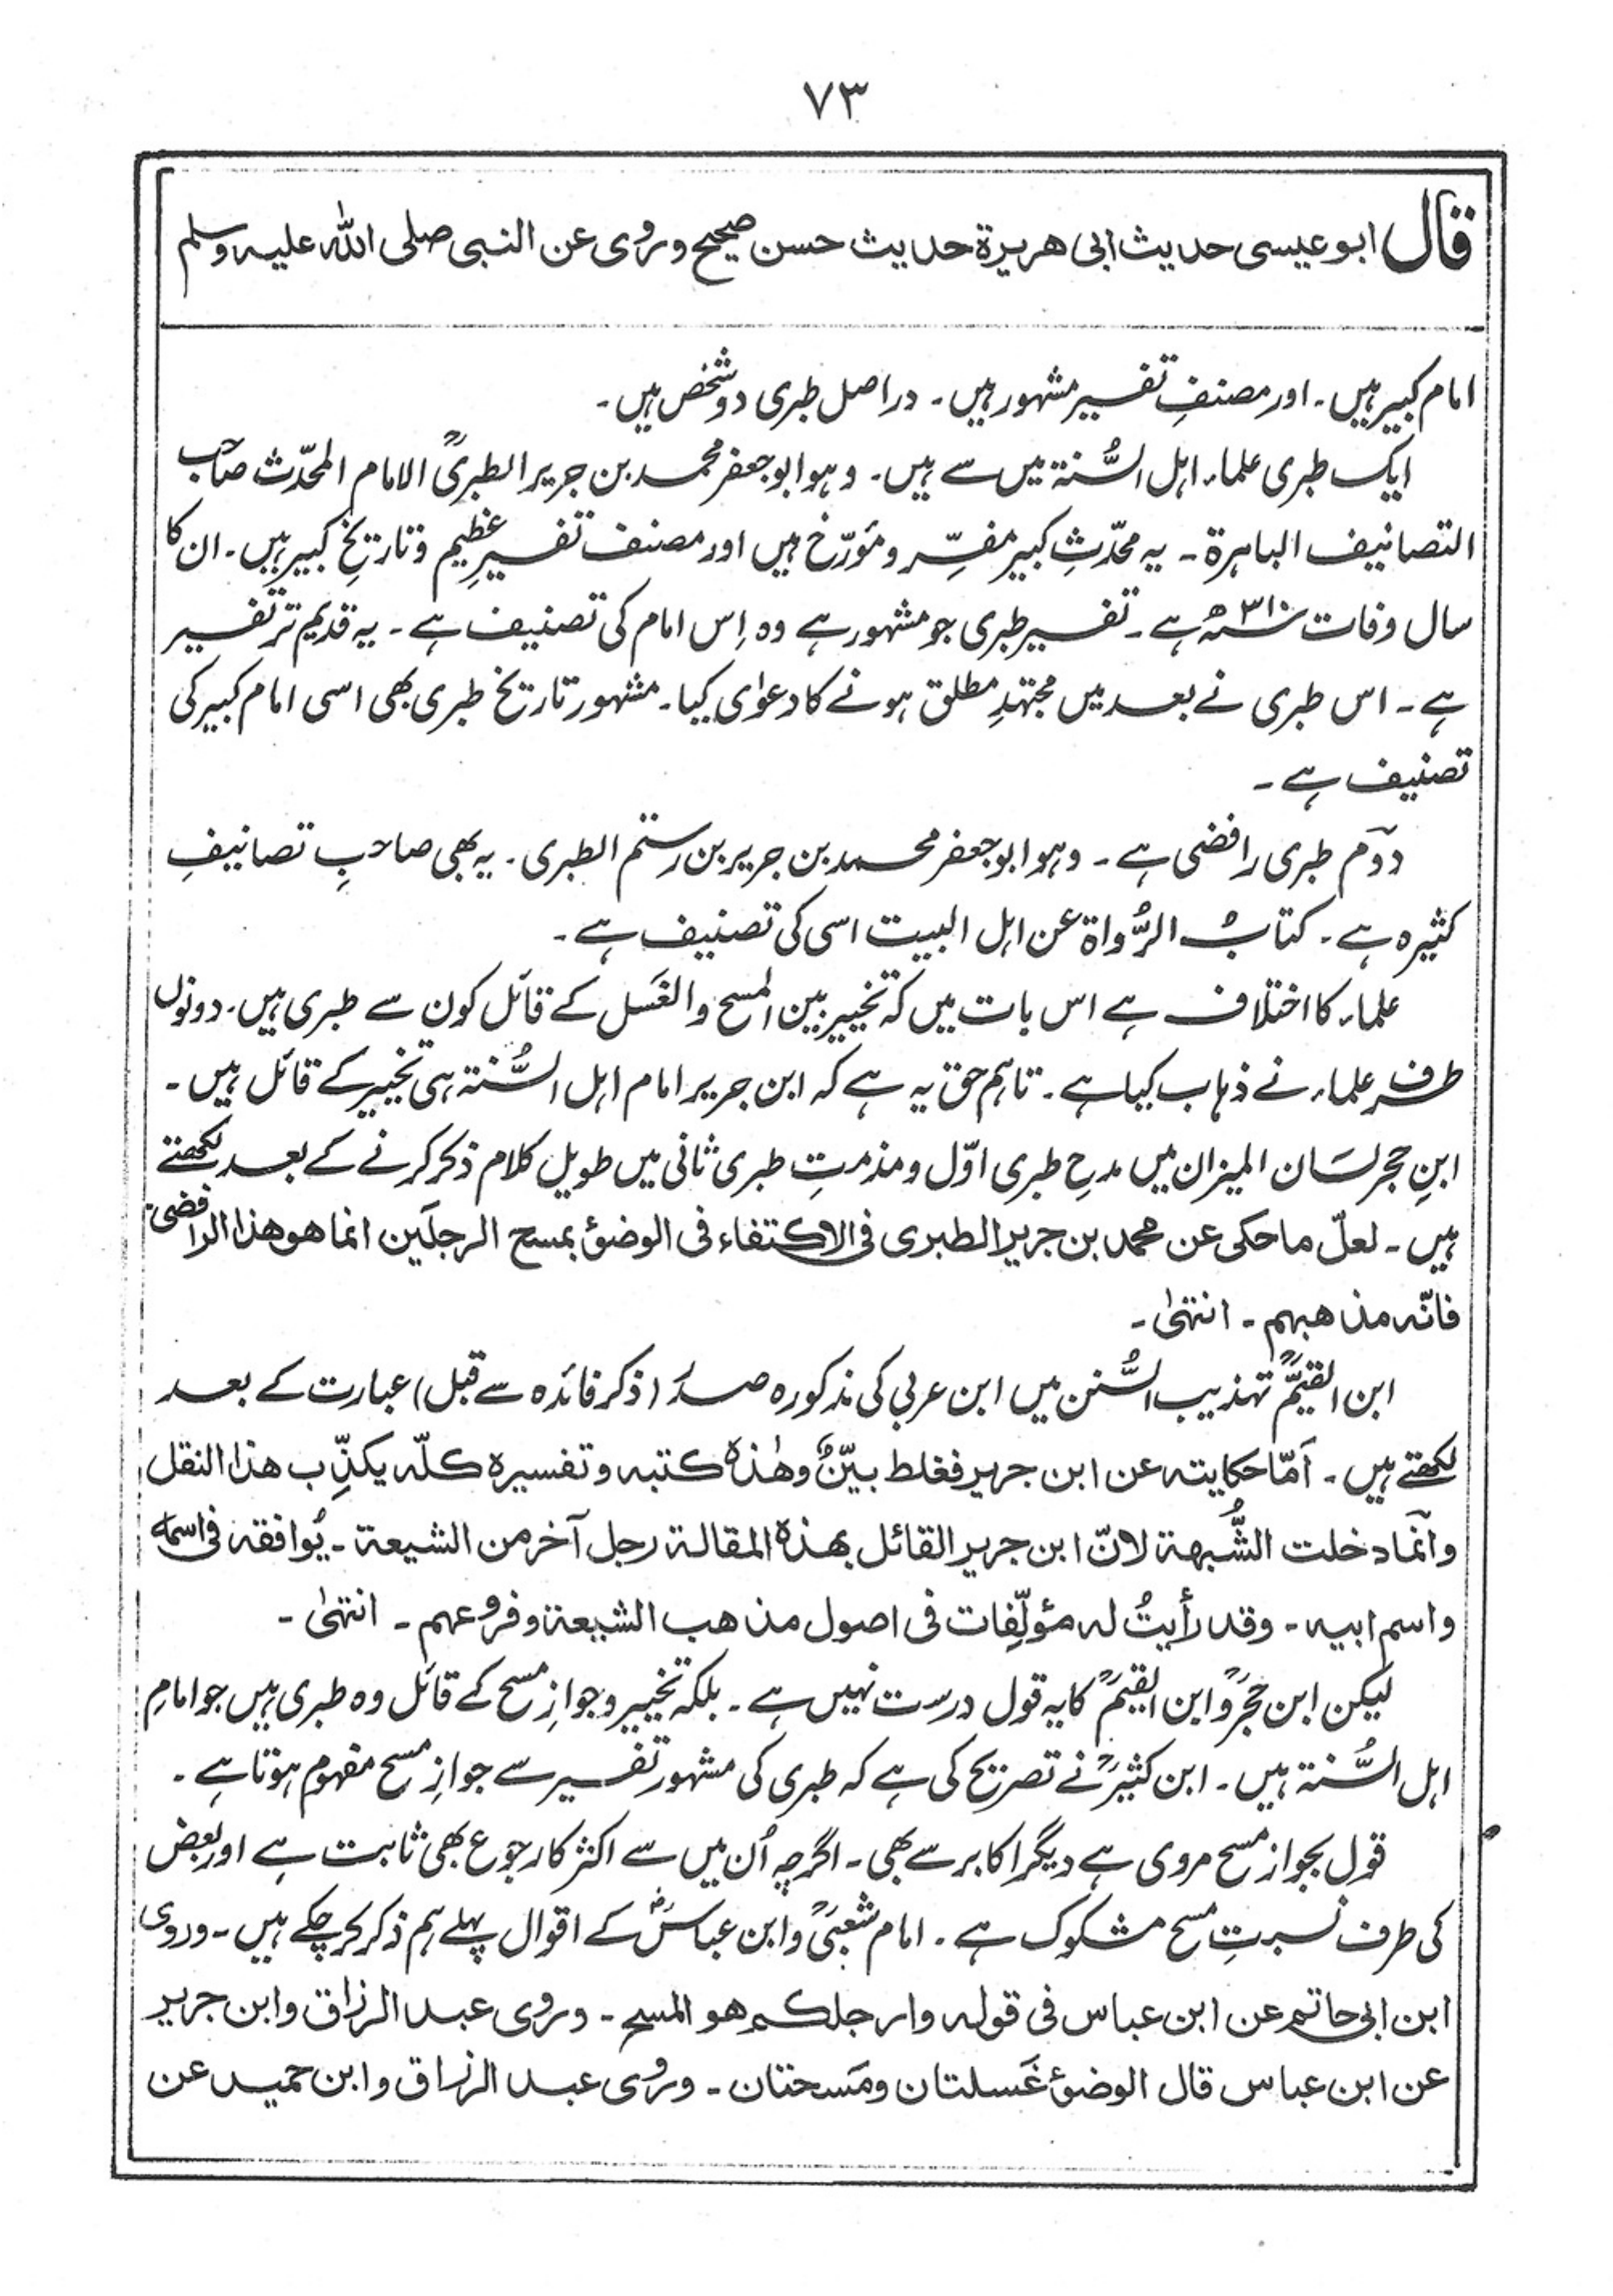 ۷۳
قال ابوعیسی حدیث ابی هریرة حدیث حسن صحیح وروی عن النبی صلی الله علیہ وسلم
امام کبیر ہیں۔ اور مصنفِ تفسیر مشہور ہیں۔ دراصل طبری دو شخص ہیں۔
ایک طبری علماء اہل السُّنۃ میں سے ہیں۔ وہو ابوجعفر محمد بن جریر الطبریؒ الامام المحدّث صاحب
التصانیف الباہرۃ۔ یہ محدّثِ کبیر مفسِّر و مؤرّخ ہیں اور مصنف تفسیرِ عظیم و تاریخِ کبیر ہیں۔ ان کا
سال وفات ۳۱۰ھ ہے۔ تفسیر طبری جو مشہور ہے وہ اِس امام کی تصنیف ہے۔ یہ قدیم تر تفسیر
ہے۔ اس طبری نے بعد میں مجتہدِ مطلق ہونے کا دعوٰی کیا۔ مشہور تاریخ طبری بھی اسی امام کبیر کی
تصنیف ہے۔
دوّم طبری رافضی ہے۔ وہو ابوجعفر محمد بن جریر بن رستم الطبری۔ یہ بھی صاحبِ تصانیفِ
کثیرہ ہے۔ کتابُ الرُّواۃ عن اہل البیت اسی کی تصنیف ہے۔
علماء کا اختلاف ہے اس بات میں کہ تخییر بین المسح والغَسل کے قائل کون سے طبری ہیں۔ دونوں
طرف علماء نے ذہاب کیا ہے۔ تاہم حق یہ ہے کہ ابن جریر امام اہل السُّنۃ ہی تخییر کے قائل ہیں۔
ابنِ حجر لسَان المیزان میں مدحِ طبری اوّل و مذمتِ طبری ثانی میں طویل کلام ذکر کرنے کے بعد لکھتے
ہیں۔ لعلّ ما حکی عن محمد بن جریر الطبری فی الاکتفاء فی الوضؤ بمسح الرجلَین انما هو هذا الرافضی
فانّہ مذهبهم۔ انتهٰی۔
ابن القیّمؒ تہذیب السُّنن میں ابن عربی کی مذکورہ صدر (ذکر فائدہ سے قبل) عبارت کے بعد
لکھتے ہیں۔ اَمّا حکایتہ عن ابن جریر فغلط بیّنٌ وهٰذہ کتبہ وتفسیرہ کلّہ یکذِّب هذا النقل
وانّما دخلت الشُّبهۃ لانّ ابن جریر القائل بهذہ المقالۃ رجل آخر من الشیعۃ۔ یُوافقہ فی اسمہ
واسم ابیہ۔ وقد رأیتُ لہ مؤلّفات فی اصول مذهب الشیعۃ وفروعهم۔ انتهٰی۔
لیکن ابن حجرؒ و ابن القیمؒ کا یہ قول درست نہیں ہے۔ بلکہ تخییر و جوازِ مسح کے قائل وہ طبری ہیں جو امامِ
اہل السُّنۃ ہیں۔ ابن کثیرؒ نے تصریح کی ہے کہ طبری کی مشہور تفسیر سے جوازِ مسح مفہوم ہوتا ہے۔
قول بجواز مسح مروی ہے دیگر اکابر سے بھی۔ اگرچہ اُن میں سے اکثر کا رجوع بھی ثابت ہے اور بعض
کی طرف نسبتِ مسح مشکوک ہے۔ امام شعبیؒ و ابن عباسؓ کے اقوال پہلے ہم ذکر کرچکے ہیں۔ وروی
ابن ابی حاتم عن ابن عباس فی قولہ وارجلکم هو المسح۔ وروی عبد الرزاق وابن جریر
عن ابن عباس قال الوضؤ غَسلتان ومَسحتان۔ وروی عبد الرزاق وابن حمید عن